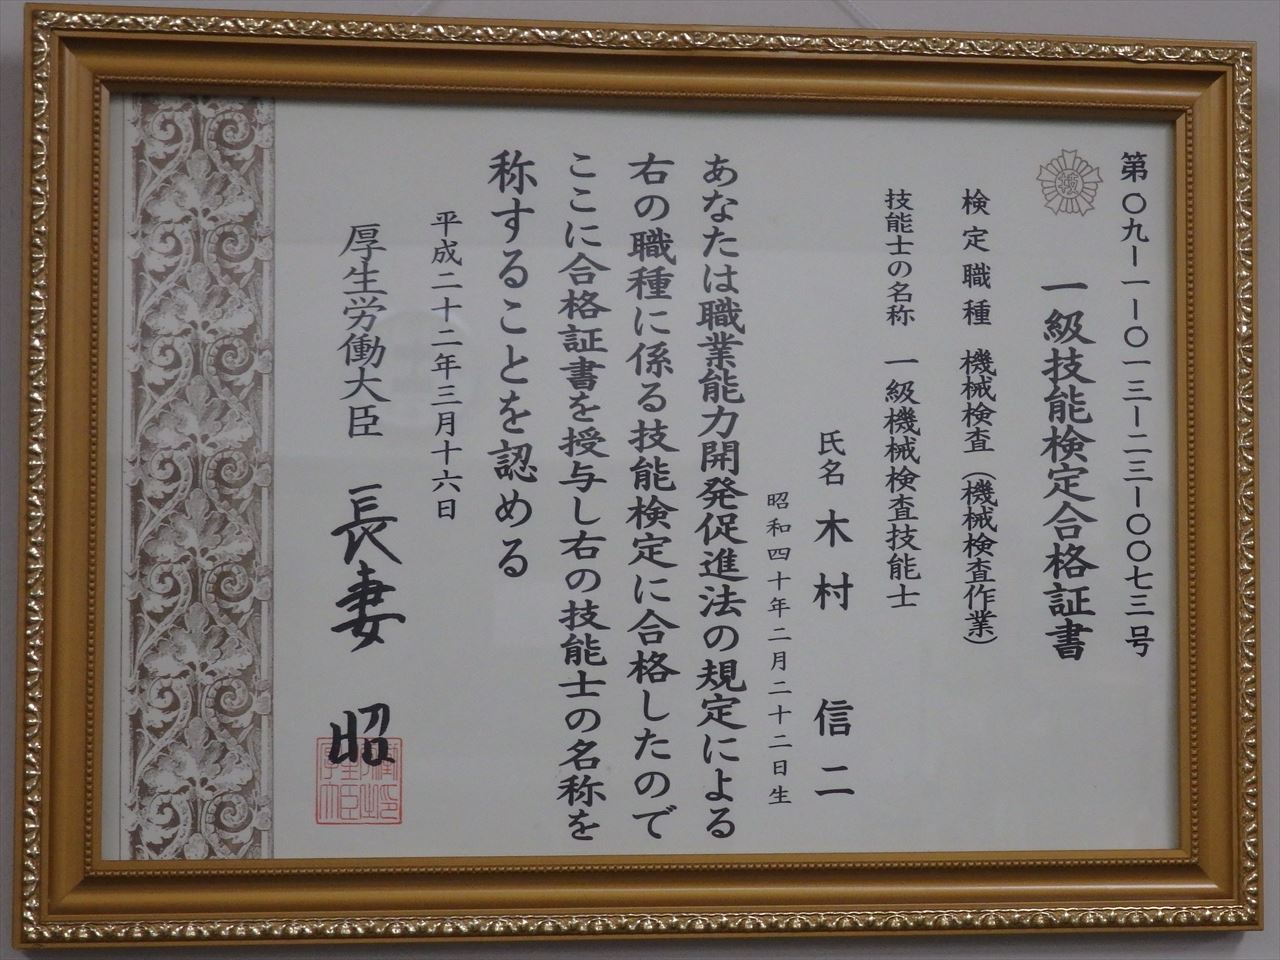 第〇九－一－〇一三－二三－〇〇七三号
一級技能検定合格証書
検定職種 機械検査（機械検査作業）
技能士の名称 一級機械検査技能士
氏名 木村 信二
昭和四十年二月二十二日生
あなたは職業能力開発促進法の規定による
右の職種に係る技能検定に合格したので
ここに合格証書を授与し右の技能士の名称を
称することを認める
平成二十二年三月十六日
厚生労働大臣 長妻 昭